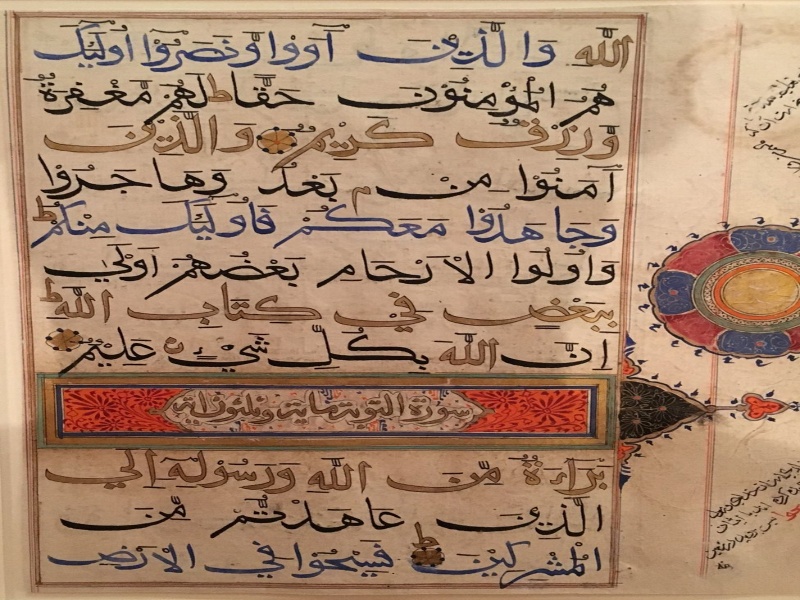 اللهِ وَالَّذِينَ آوَوْا وَنَصَرُوا أُولَئِكَ
هُمُ الْمُؤْمِنُونَ حَقًّا ط لَهُمْ مَغْفِرَةٌ
وَرِزْقٌ كَرِيمٌ وَالَّذِينَ
آمَنُوا مِنْ بَعْدُ وَهَاجَرُوا
وَجَاهَدُوا مَعَكُمْ فَأُولَئِكَ مِنْكُمْ ط
وَأُولُوا الْأَرْحَامِ بَعْضُهُمْ أَوْلَى
بِبَعْضٍ فِي كِتَابِ اللهِ ط
إِنَّ اللهَ بِكُلِّ شَيْءٍ عَلِيمٌ
سورة التوبة ماية وثلثون اية
بَرَاءَةٌ مِّنَ اللهِ وَرَسُولِهِ إِلَى
الَّذِينَ عَاهَدْتُّمْ مِّنَ
الْمُشْرِكِينَ ط فَسِيحُوا فِي الْأَرْضِ